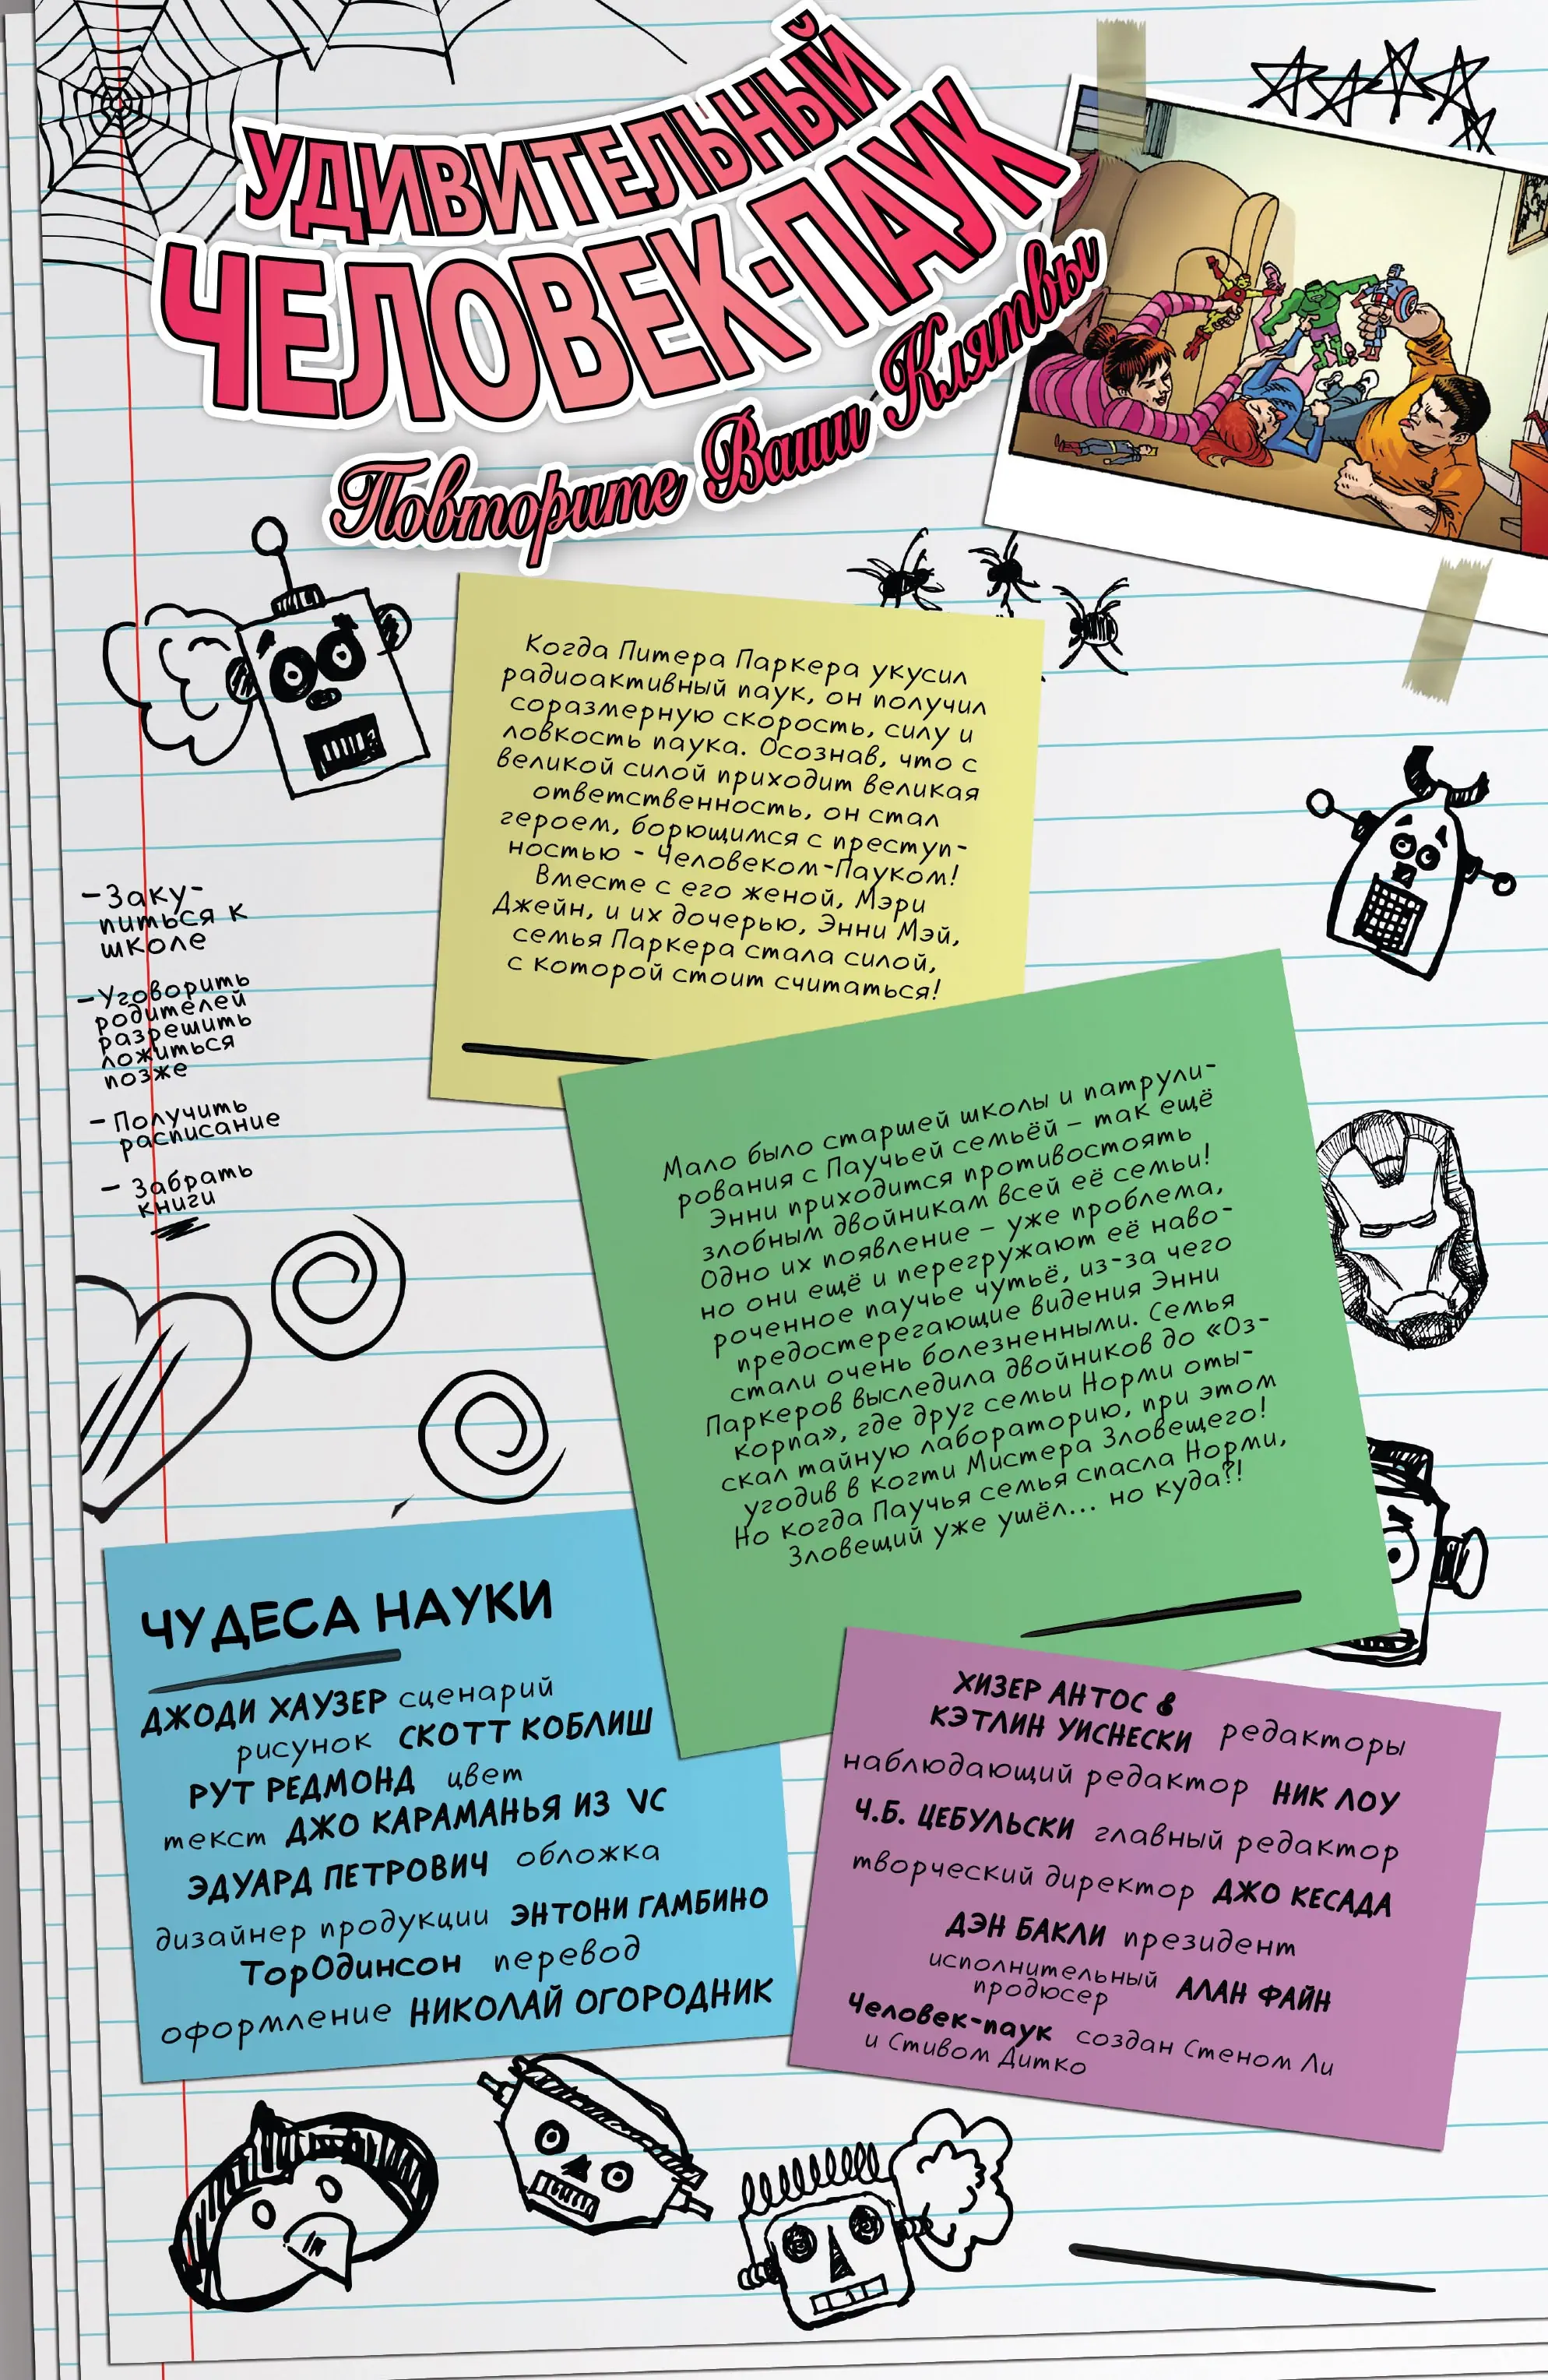 УДИВИТЕЛЬНЫЙ
ЧЕЛОВЕК-ПАУК
Повторите Ваши Клятвы
Когда Питера Паркера укусил
радиоактивный паук, он получил
соразмерную скорость, силу и
ловкость паука. Осознав, что с
великой силой приходит великая
ответственность, он стал
героем, борющимся с преступ-
ностью - Человеком-Пауком!
Вместе с его женой, Мэри
Джейн, и их дочерью, Энни Мэй,
семья Паркера стала силой,
с которой стоит считаться!
-Заку-
питься к
школе
-Уговорить
родителей
разрешить
ложиться
позже
- Получить
расписание
- Забрать
книги
Мало было старшей школы и патрули-
рования с Паучьей семьёй – так ещё
Энни приходится противостоять
злобным двойникам всей её семьи!
Одно их появление – уже проблема,
но они ещё и перегружают её наво-
роченное паучье чутьё, из-за чего
предостерегающие видения Энни
стали очень болезненными. Семья
Паркеров выследила двойников до «Оз-
корпа», где друг семьи Норми оты-
скал тайную лабораторию, при этом
угодив в когти Мистера Зловещего!
Но когда Паучья семья спасла Норми,
Зловещий уже ушёл... но куда?!
ЧУДЕСА НАУКИ
ДЖОДИ ХАУЗЕР сценарий
рисунок СКОТТ КОБЛИШ
РУТ РЕДМОНД цвет
текст ДЖО КАРАМАНЬЯ ИЗ VC
ЭДУАРД ПЕТРОВИЧ обложка
дизайнер продукции ЭНТОНИ ГАМБИНО
ТорОдинсон перевод
оформление НИКОЛАЙ ОГОРОДНИК
ХИЗЕР АНТОС &
КЭТЛИН УИСНЕСКИ редакторы
наблюдающий редактор НИК ЛОУ
Ч.Б. ЦЕБУЛЬСКИ главный редактор
творческий директор ДЖО КЕСАДА
ДЭН БАКЛИ президент
исполнительный
продюсер АЛАН ФАЙН
Человек-паук создан Стеном Ли
и Стивом Дитко